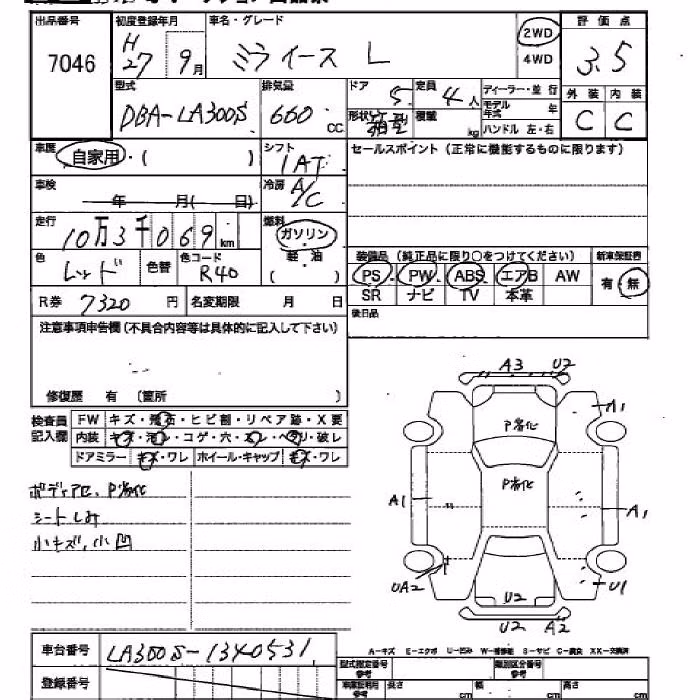 出品番号 初度登録年月 車名・グレード 評価点
7046 H27 9月 ミライース L 2WD 4WD 3.5
型式 排気量 ドア 定員 ディーラー・並行 外装 内装
DBA-LA300S 660cc 5 4人 モデル年式 年 C C
形状 積載 kg ハンドル 左・右
車歴 自家用・( ) シフト 1AT セールスポイント(正常に機能するものに限ります)
車検 年 月( 日) 冷房 A/C
走行 10万3千069km 燃料 ガソリン
軽・油
( )
色 レッド 色替 色コード R40 装備品(純正品に限り○をつけてください) 新車保証書
PS PW ABS エアB AW 有・無
R券 7320円 名変期限 月 日 SR ナビ TV 本革
後日品
注意事項申告欄(不具合内容等は具体的に記入して下さい)
修復歴 有 (箇所 )
検査員記入欄 FW キズ・飛石・ヒビ割・リペア跡・X要
内装 キズ・汚レ・コゲ・穴・スレ・ヘタリ・破レ
ドアミラー キズ・ワレ ホイール・キャップ キズ・ワレ
ボディアセ、P劣化
シートしみ
小キズ,小凹
A3 U2
A1
P劣化
P劣化
A1
A1
UA2
U2
U1
U2 A2
A-キズ E-エクボ U-凹み W-補修跡 S-サビ C-腐食 XX-交換済
車台番号 LA300S-1340531
登録番号
型式指定番号 参考 類別区分番号 参考
長さ cm 幅 cm 高さ cm